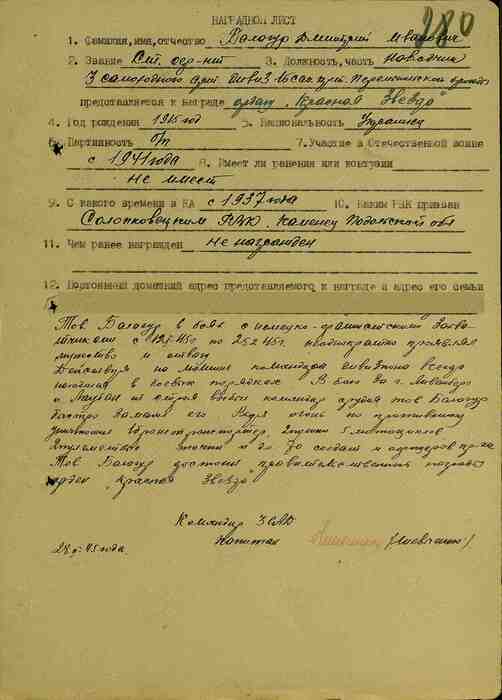 280
НАГРАДНОЙ ЛИСТ
1. Фамилия, имя, отчество Балогур Дмитрий Иванович
2. Звание Ст. сер-нт 3. Должность, часть наводчик
3 самоходного арт. дивиз.
представляется к награде ордену "Красная Звезда"
4. Год рождения 1915 год 5. Национальность Украинец
6. Партийность б/п 7. Участие в Отечественной войне
с 1941 года 8. Имеет ли ранения или контузии
не имеет
9. С какого времени в КА с 1937 года 10. Каким РВК призван
Солобковецким РВК, Каменец Подольской обл
11. Чем ранее награжден не награжден
12. Постоянный домашний адрес представляемого к награде и адрес его семьи
Тов Балогур в боях с немецко-фашистскими захва
тчиками с 12.1.45г по 25.2.45г. неоднократно проявлял
мужество и отвагу
Действуя на машине командира дивизиона всегда
находился в боевых порядках. В бою за г.
и Лаубан из строя выбыл командир орудия тов Балогур
быстро заменил его Ведя огонь по противнику
уничтожил бронетранспортер, 5 мотоциклов
и до 70 солдат и офицеров пр-ка
Тов Балогур достоин правительственной награды
орден "Красная Звезда"
Командир 3 САД
Капитан
28 45 года.